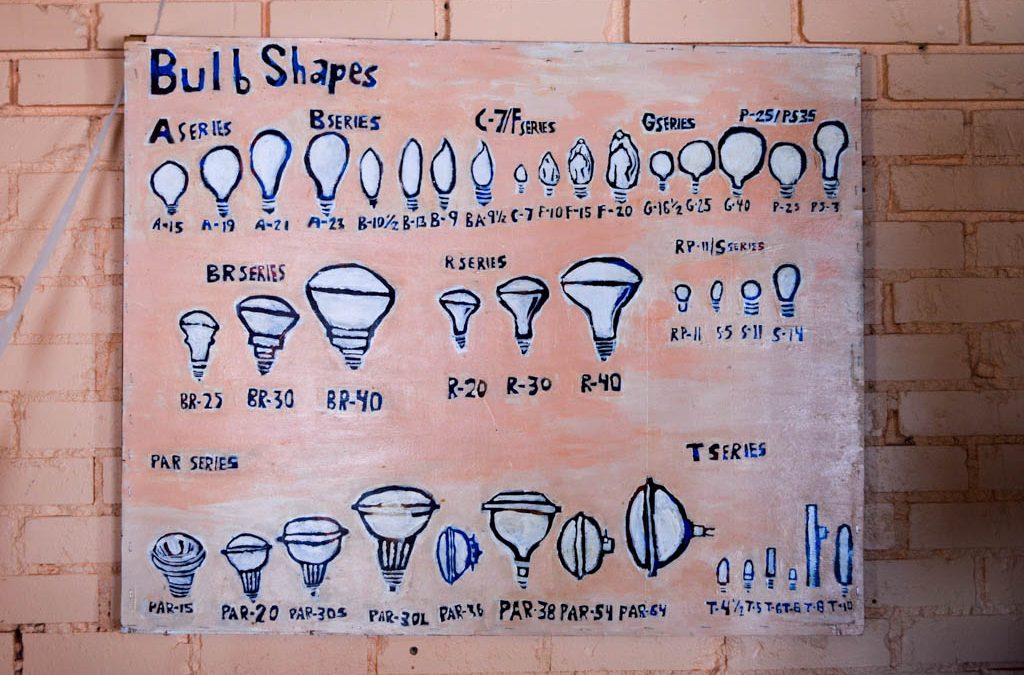 Bulb Shapes
A SERIES
B SERIES
C-7/F SERIES
G SERIES
P-25/PS35
A-15 A-19 A-21 A-23 B-10½ B-13 B-9 BA-9½ C-7 F-10 F-15 F-20 G-16½ G-25 G-40 P-25 PS-3
BR SERIES
R SERIES
RP-11/S SERIES
RP-11 S-5 S-11 S-14
BR-25 BR-30 BR-40 R-20 R-30 R-40
PAR SERIES
T SERIES
PAR-15 PAR-20 PAR-30S PAR-30L PAR-36 PAR-38 PAR-54 PAR-64 T-4½ T-5 T-6 T-6 T-8 T-10